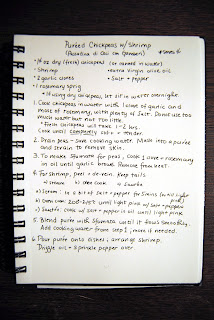 Pureed Chickpeas w/ Shrimp
(Passatina di Ceci con Gamberi)
* serves 4
- 14 oz dry (fresh) chickpeas (or canned in water)
- Shrimp
- extra virgin olive oil
- 2 garlic cloves
- salt + pepper
- 1 rosemary sprig
* If using dry chickpeas, let sit in water overnight.
1. Cook chickpeas in water with 1 clove of garlic and
most of rosemary, with plenty of salt. Do not use too
much water but not too little.
* Fresh chickpeas will take 1-2 hrs.
Cook until completely soft + tender.
2. Drain peas - save cooking water. Mash into a puree
and strain to remove skin.
3. To make Sfumata for peas, cook 1 clove + rosemary
in oil until garlic browns. Remove from heat.
4. For shrimp, peel + de-vein. Keep tails
↳ steam ↳ oven cook ↳ sautee
a) Steam: in a bit of salt + pepper for 5 mins (until light pink)
b) Oven cook: 200° until light pink w/ salt + pepper
c) Sautee: cook w/ salt + pepper in oil until light pink.
5. Blend puree with Sfumata until it flows smoothly.
Add cooking water from step 1, more if needed.
6. Pour puree onto dishes, arrange shrimp.
Drizzle oil + sprinkle pepper over